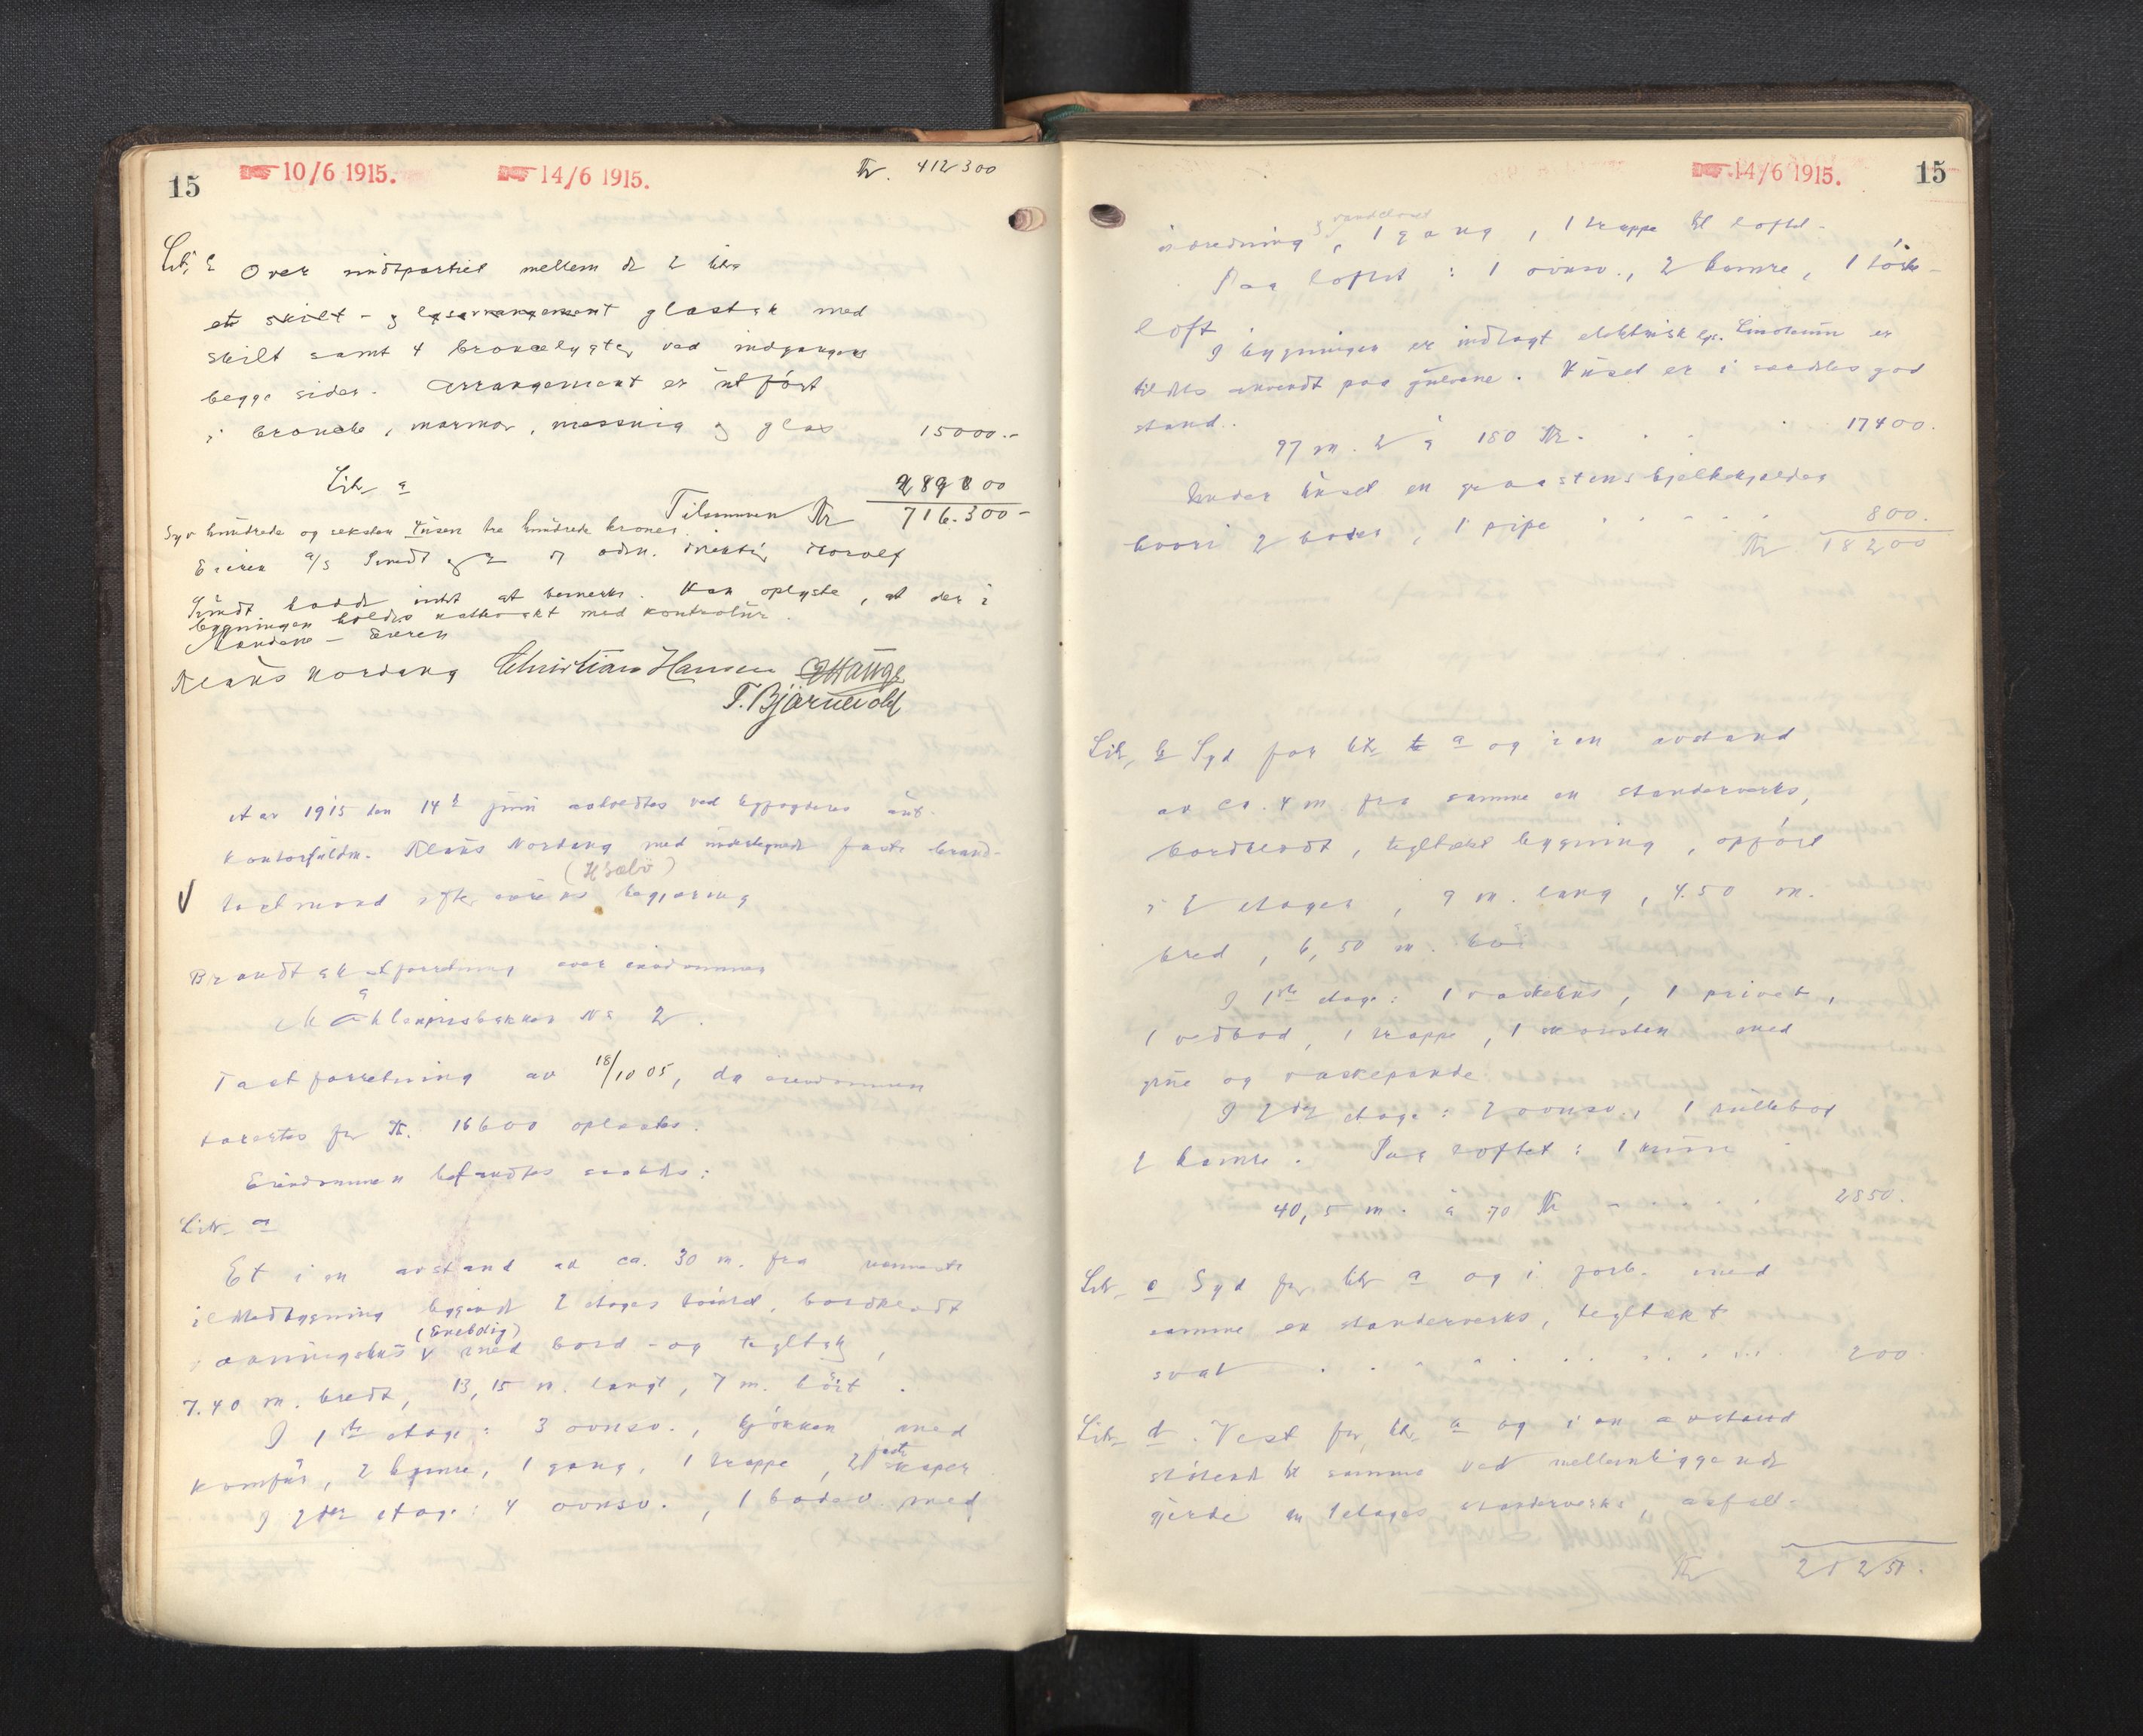 15
10/6 1915.
14/6 1915.
Kr. 412300
Litr. b Over midtpartiet mellem de 2
et skilt - og lysarrangement glastak med
skilt samt 4 broncelygter ved indgangens
begge sider. Arrangement er utført
i bronce, marmor, messing og glas 15000.-
Litr. a 289000
Tilsammen Kr 716.300-
Syv hundrede og seksten tusen tre hundrede kroner.
Eieren a/s Smidt ved adm. direktør Thorolf
Smidt hadde intet at bemerke. Han oplyste, at der i
bygningen holdes nattevakt med kontrolur.
Eieren
Klaus Nordang Christian Hansen
T. Bjørnevold
Aar 1915 den 14de juni avholdtes ved byfogdens aut.
kontorfuldm. Klaus Nordang med undertegnede faste brand-
(H Salv)
takstmænd efter eierens begjæring
Brandtakstforretning over eiendommen
Møhlenprisbakken No 2.
Takstforretning av 18/10 05, da eiendommen
taxertes for Kr. 16600 oplæstes.
Eiendommen befandtes saaledes:
Litr. a
Et i en avstand av ca. 30 m. fra nærmeste
ildstedbygning liggende 2 etages tømret, bordklædt
(Enebolig)
vaaningshus med bord - og tegltak,
7.40 m. bredt, 13,15 m. langt, 7 m. høit.
I 1ste etage: 3 ovnsv., kjøkken med
komfur, 2 kamre, 1 gang, 1 trappe, 2 faste skaper
I 2den etage: 4 ovnsv., 1 badev. med
14/6 1915.
15
og vandcloset
indredning, 1 gang, 1 trappe til loftet.
Paa loftet: 1 ovnsv., 2 kamre, 1 tørke-
loft
I bygningen er indlagt elektrisk lys. Linoleum er
tildels anvendt paa gulvene. Huset er i særdeles god
stand.
97 m. 2 à 180 Kr. 17400.
Under huset en graastens bjelkekjelder
hvori 2 boder, 1 pipe 800.
Kr 18200
Litr. b Syd for litr. a og i en avstand
av ca. 4 m. fra samme en standerverks,
bordklædt, tegltækt bygning, opført
i 2 etager, 9 m. lang, 4.50 m.
bred, 6,50 m. høi
I 1ste etage: 1 vaskehus, 1 privet,
1 vedbod, 1 trappe, 1 skorsten med
grue og vaskepande.
I 2den etage: 2 ovnsv., 1 rullebod
2 kamre. Paa loftet: 1 rum
40,5 m. à 70 Kr 2850.
Litr. c Syd for litr a og i forb. med
samme en standerverks, tegltækt
sval 200.
Litr. d. Vest for litr. a og i en avstand
støtende til samme ved mellemliggende
gjerde en 1 etages standerverks, asfalt-
Kr 21250.